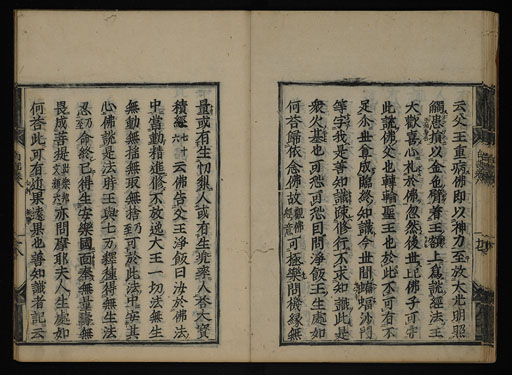 云父王重病佛即以神力至放大光明照
觸患損以金色臂著王額上爲說經法王
大歡喜心礼於佛忽然後世此佛子可守
此說佛父也轉輪聖王也於此不可有不
足今世算成臨終知識今世間蝙蝠沙門
等字我是善知識踈修行不求知識此是
衆火基也可恐可恐曰問淨飯王生處如
何荅歸依念佛故觀佛經意可極樂問機縁無
量或有生切利人或有生兜率人荅大寳
積經六十七云佛告父王淨飯曰汝於佛法
中當動精進修不放逸大王一切法無生
無動無搖無取無捨乃至可於此法中安其
心佛說是法時王與七万釋種得無生法
忍乃至命終已得生安樂國面奉無量壽無
畏成菩提亦問摩耶夫人生處如
何荅此可有道果遠果也善知識者記云